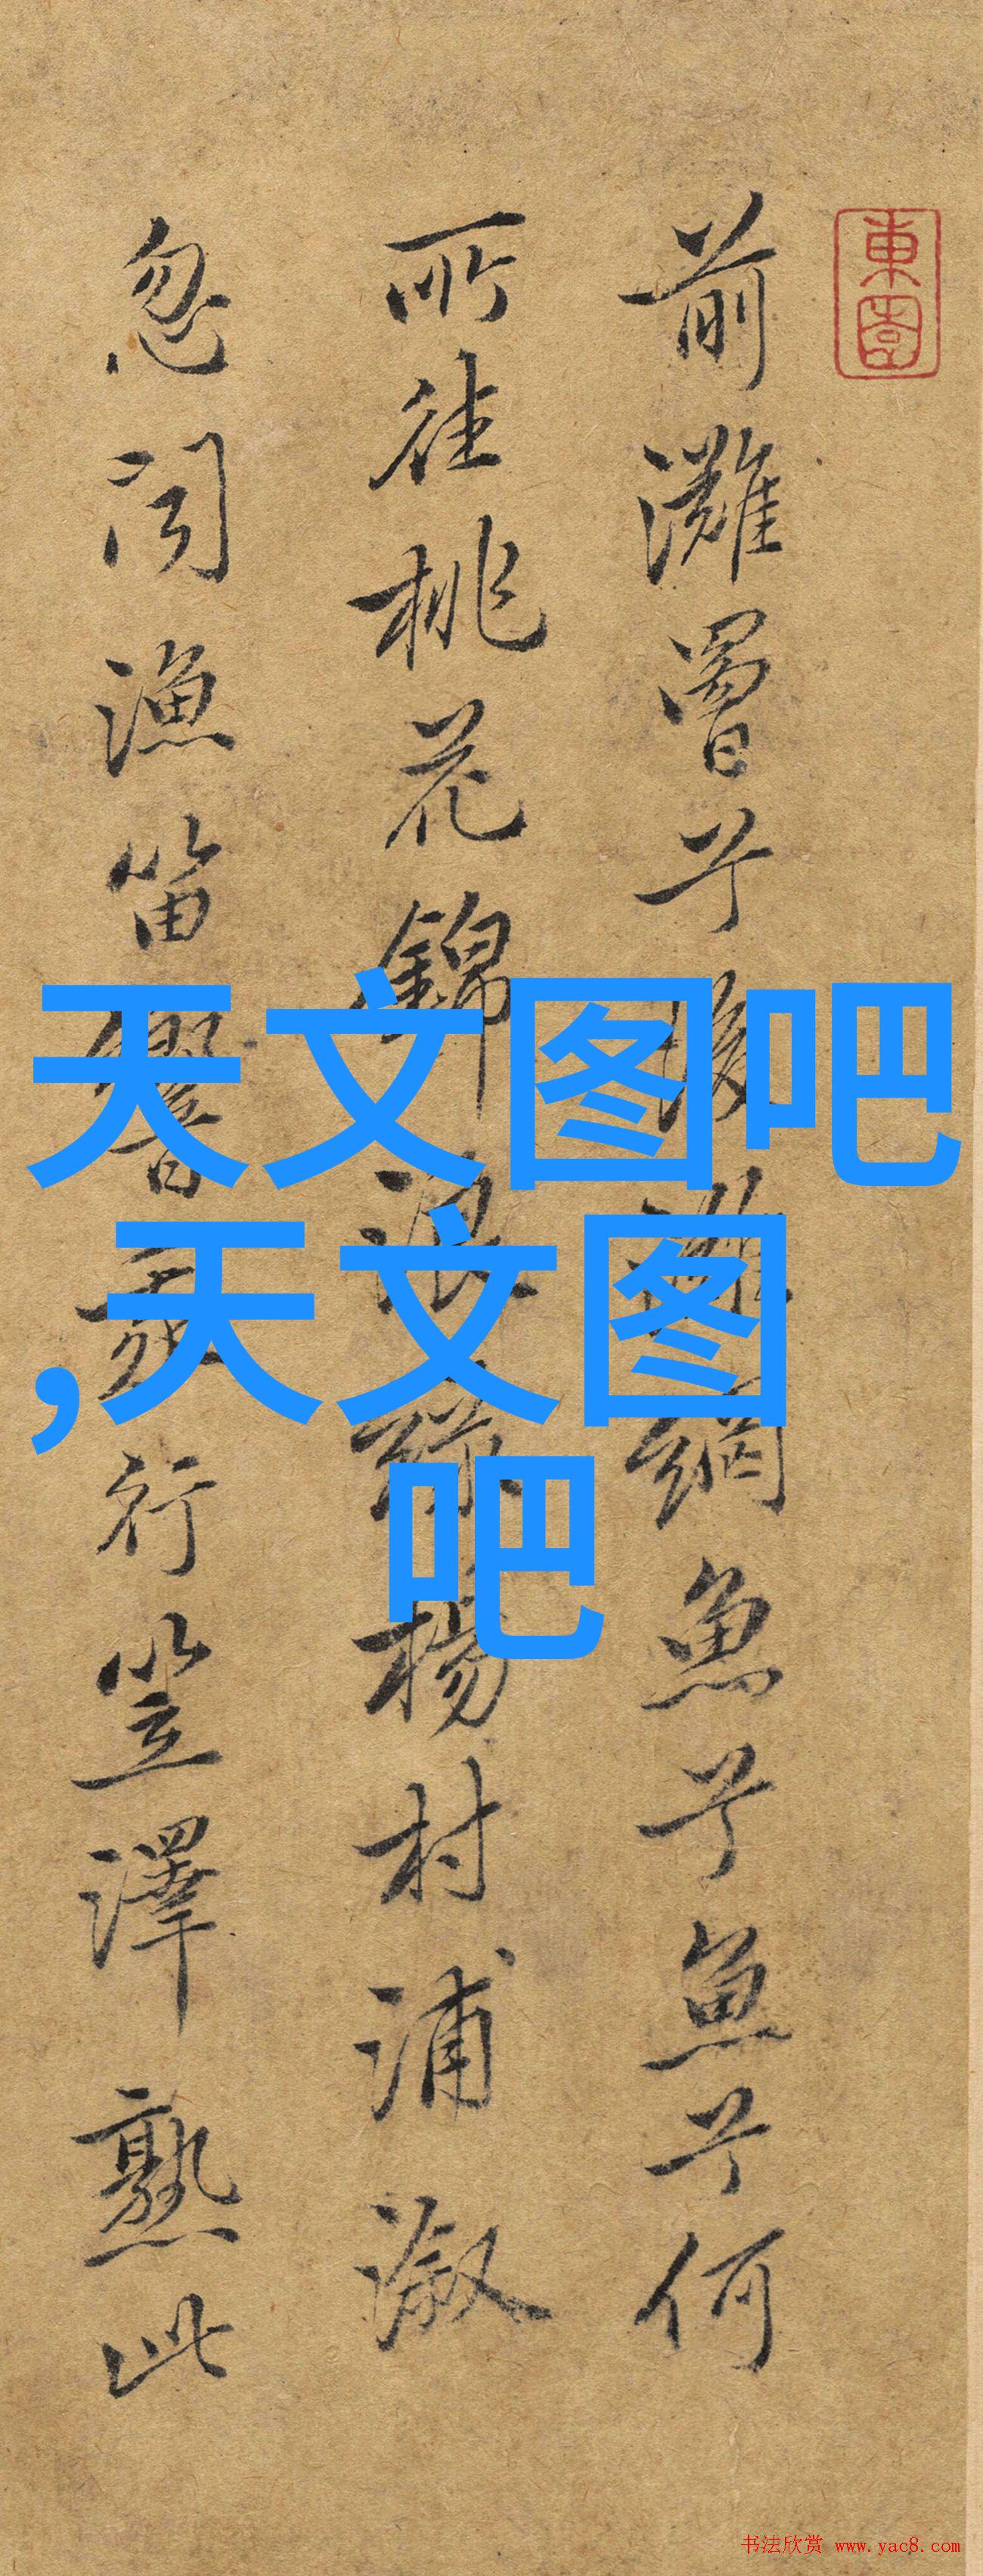 東園
前灘罾兮後灘網魚兮魚兮何
所往桃花錦浪綠楊村浦溆
忽聞漁笛響我行笠澤熟此
天文图吧
,天文图
吧
书法欣赏 www.yac8.com